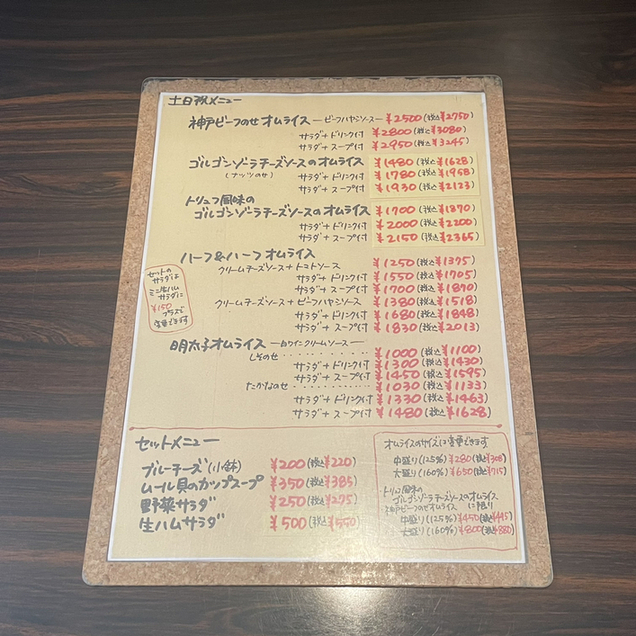 土日祝メニュー
神戸ビーフのせ オムライス ービーフハヤシソースー ¥2500(税込¥2750)
サラダ+ドリンク付 ¥2800(税込¥3080)
サラダ+スープ付 ¥2950(税込¥3245)
ゴルゴンゾーラチーズソースのオムライス ¥1480(税込¥1628)
(ナッツのせ) サラダ+ドリンク付 ¥1780(税込¥1958)
サラダ+スープ付 ¥1930(税込¥2123)
トリュフ風味の
ゴルゴンゾーラチーズソースのオムライス ¥1700(税込¥1870)
サラダ+ドリンク付 ¥2000(税込¥2200)
サラダ+スープ付 ¥2150(税込¥2365)
ハーフ&ハーフ オムライス
クリームチーズソース+トマトソース ¥1250(税込¥1375)
サラダ+ドリンク付 ¥1550(税込¥1705)
サラダ+スープ付 ¥1700(税込¥1870)
クリームチーズソース+ビーフハヤシソース ¥1380(税込¥1518)
サラダ+ドリンク付 ¥1680(税込¥1848)
サラダ+スープ付 ¥1830(税込¥2013)
セットの
サラダは
ミニ生ハム
サラダに
¥150
プラスで
変更できます
明太子オムライス ー白ワインクリームソースー
しそのせ ¥1000(税込¥1100)
サラダ+ドリンク付 ¥1300(税込¥1430)
サラダ+スープ付 ¥1450(税込¥1595)
たかなのせ ¥1030(税込¥1133)
サラダ+ドリンク付 ¥1330(税込¥1463)
サラダ+スープ付 ¥1480(税込¥1628)
セットメニュー
ブルーチーズ(小鉢) ¥200(税込¥220)
ムール貝のカップスープ ¥350(税込¥385)
野菜サラダ ¥250(税込¥275)
生ハムサラダ ¥500(税込¥550)
オムライスのサイズに変更できます
中盛り(125%) ¥280(税込¥308)
大盛り(160%) ¥650(税込¥715)
トリュフ風味の
ゴルゴンゾーラチーズソースのオムライス
神戸ビーフのせオムライス に限り
中盛り(125%) ¥450(税込¥495)
大盛り(160%) ¥800(税込¥880)